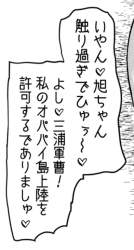 いやん♡旭ちゃん
触り過ぎでひゅぅ〜♡
よし♡三浦軍曹!
私のオパパイ島上陸を
許可するでありましゅ♡